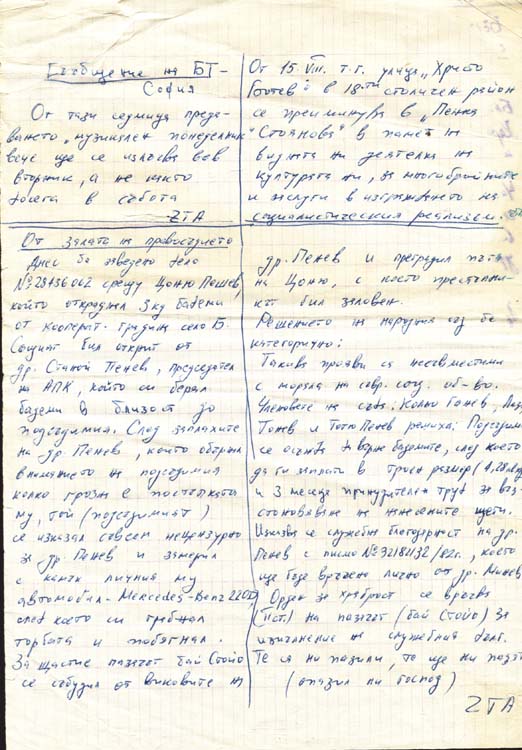 Съобщение на БТ –
София
От тази седмица преда-
ването „музикален понеделник"
вече ще се излъчва във
вторник, а не както
досега в събота
ZTA
От 15 VIII. т.г. улица „Христо
Ботев" в 18-ти столичен район
се преименува в „Пенка
Стоянова" в памет на
видната ни деятелка на
културата ни, за многобройните
и заслуги в изграждането на
социалистическия реализъм.
От залата на правосъдието
Днес бе заведено дело
срещу Цоньо Пешев,
който откраднал 3 кг бадеми
от кооперат. градина село Б.
Същият бил открит от
др. Станой Пенев, председател
на АПК, който си берял
бадеми в близост до
подсъдимия. След заплахите
на др. Пенев, които обърнал
вниманието на подсъдимия
колко грозна е постъпката
му, той (подсъдимият)
се изказал съвсем нецензурно
за др. Пенев и замерил
с камък личния му
автомобил - Mercedes-Benz 220D,
след което си грабнал
торбата и побягнал.
За щастие пазачът бай Стойо
се събудил от виковете на
др. Пенев и преградил пътя
на Цоньо, с което престъпни-
кът бил заловен.
Решението на народния съд бе
категорично:
Такива прояви са несъвместими
с морала на совр. соц. об-во.
Членовете на съда: Кольо Гонев,
Тонев и Тотю Пенев решиха: Подсъдимия
се осъжда да върне бадемите, след което
да ги заплати в троен размер
и 3 месеца принудителен труд за въз-
становяване на нанесените щети.
Изказва се служебна благодарност на др.
Пенев с писмо което
ще бъде връчено лично от др. Минев.
Орден за храброст се връчва
(Iст.) на пазачът (бай Стойо) за
изпълнение на служебния дълг.
Те са ни пазили, те ще ни пазят
(опазил ни господ)
ZTA